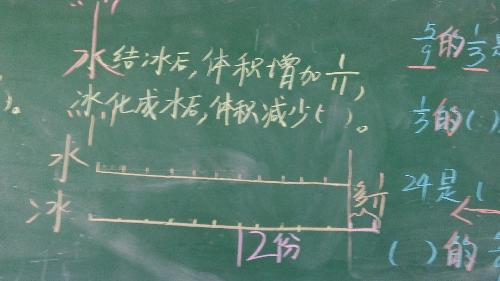 水结冰后，体积增加1/11，
冰化成水后，体积减少（ ）。
水
冰
多1/11
12份
5/9的1/3是
1/3的（ ）
24是（
（ ）的